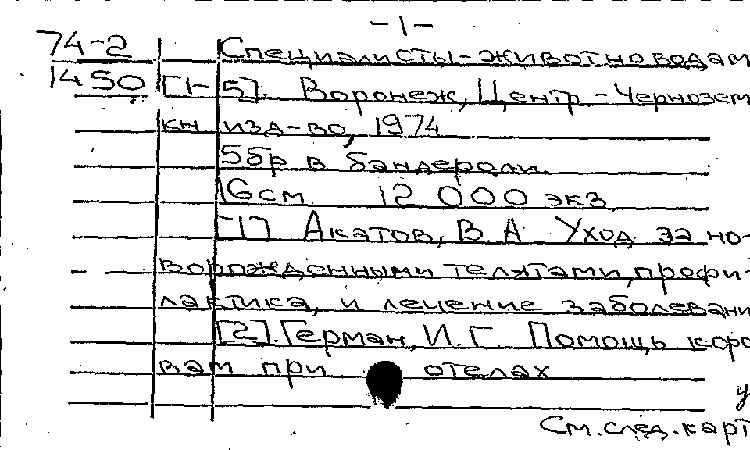 -1-
74-2 Специалисты-животноводам
1450 [1-5]. Воронеж, Центр.-Чернозем
кн. изд-во, 1974
5бр в бандероли.
16см 12 000 экз
[1] Акатов, В.А. Уход за но-
ворожденными телятами, профи-
лактика, и лечение заболевани
[2]. Герман, И.Г. Помощь коро
вам при отелах
См.след.карт